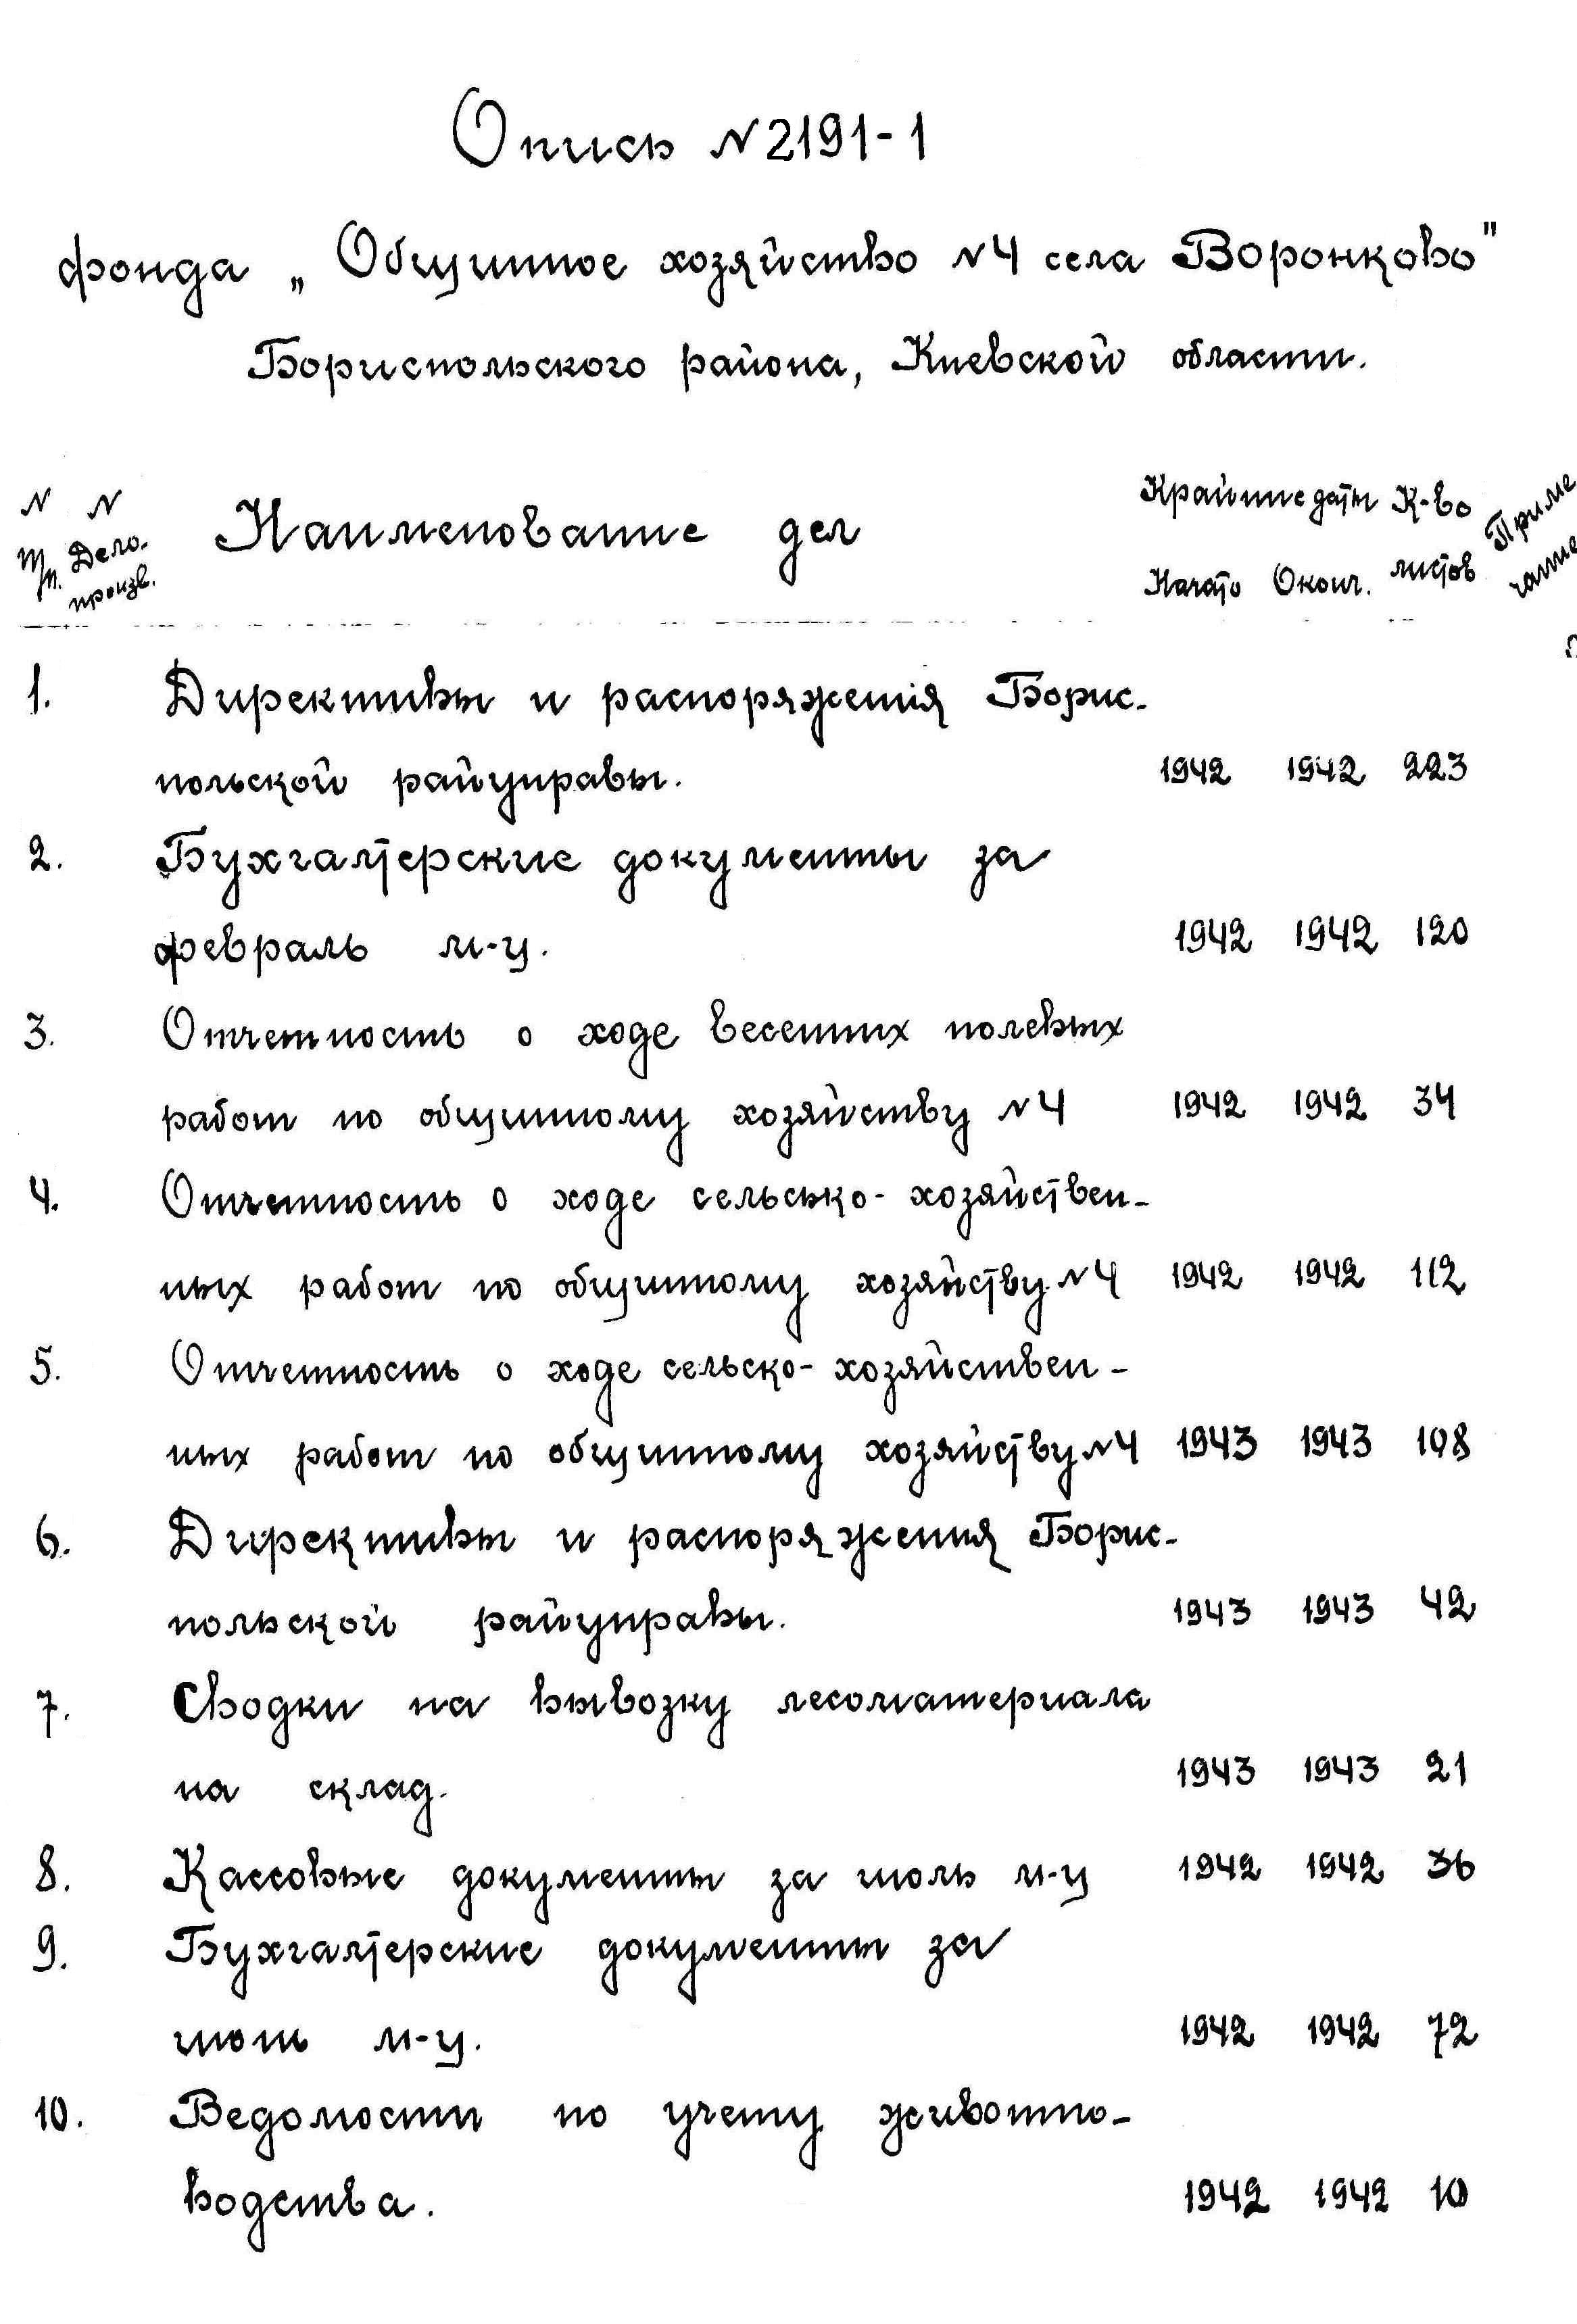 Опись №2191-1
фонда „Общинное хозяйство №4 села Воронково"
Бориспольского района, Киевской области.
N N Наименование дел Крайние даты К-во Приме
п/п. Дело- Начато Оконч. листов чание
произв.
1. Директивы и распоряжения Борис-
польской райуправы. 1942 1942 223
2. Бухгалтерские документы за
февраль м-ц. 1942 1942 120
3. Отчетность о ходе весенних полевых
работ по общинному хозяйству №4 1942 1942 34
4. Отчетность о ходе сельсько-хозяйствен-
ных работ по общинному хозяйству №4 1942 1942 112
5. Отчетность о ходе сельско-хозяйствен-
ных работ по общинному хозяйству №4 1943 1943 108
6. Директивы и распоряжения Борис-
польской райуправы. 1943 1943 42
7. Сводки на вывозку лесоматериала
на склад. 1943 1943 21
8. Кассовые документы за июль м-ц 1942 1942 36
9. Бухгалтерские документы за
м-ц. 1942 1942 72
10. Ведомости по учету животно-
водства. 1942 1942 10